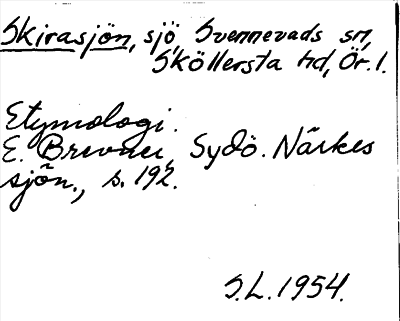 Skirasjön, sjö, Svennevads sn,
Sköllersta hd, Ör. l.
Etymologi.
E. Brevner, Sydö. Närkes
sjön., s. 192.
S.L. 1954.